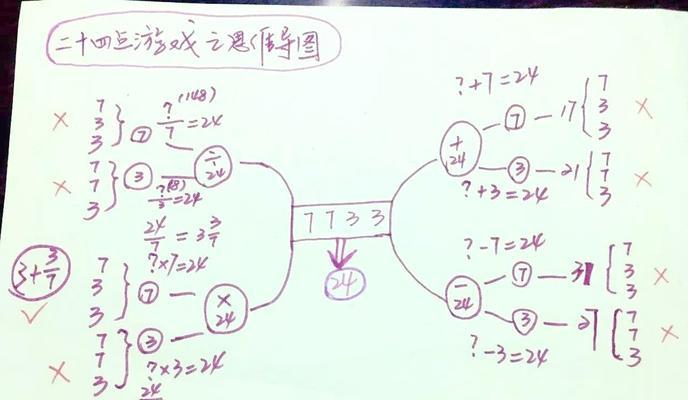 二十四点游戏之思维导图
7
3
3
⑦
?(148)
/7 = 24
7
7
3
③
?(8)
/3 = 24
÷
24
24/7 = 3 3/7
3+3/7
?×7=24
7
3
3
⑦
×
24
7
7
3
③
?×3=24
24
7 7 3 3
24
?+7=24
+
24
⑦
17
7
3
3
③
21
7
7
3
?+3=24
?-7=24
-
24
⑦
31
7
3
3
③
27
7
7
3
?-3=24